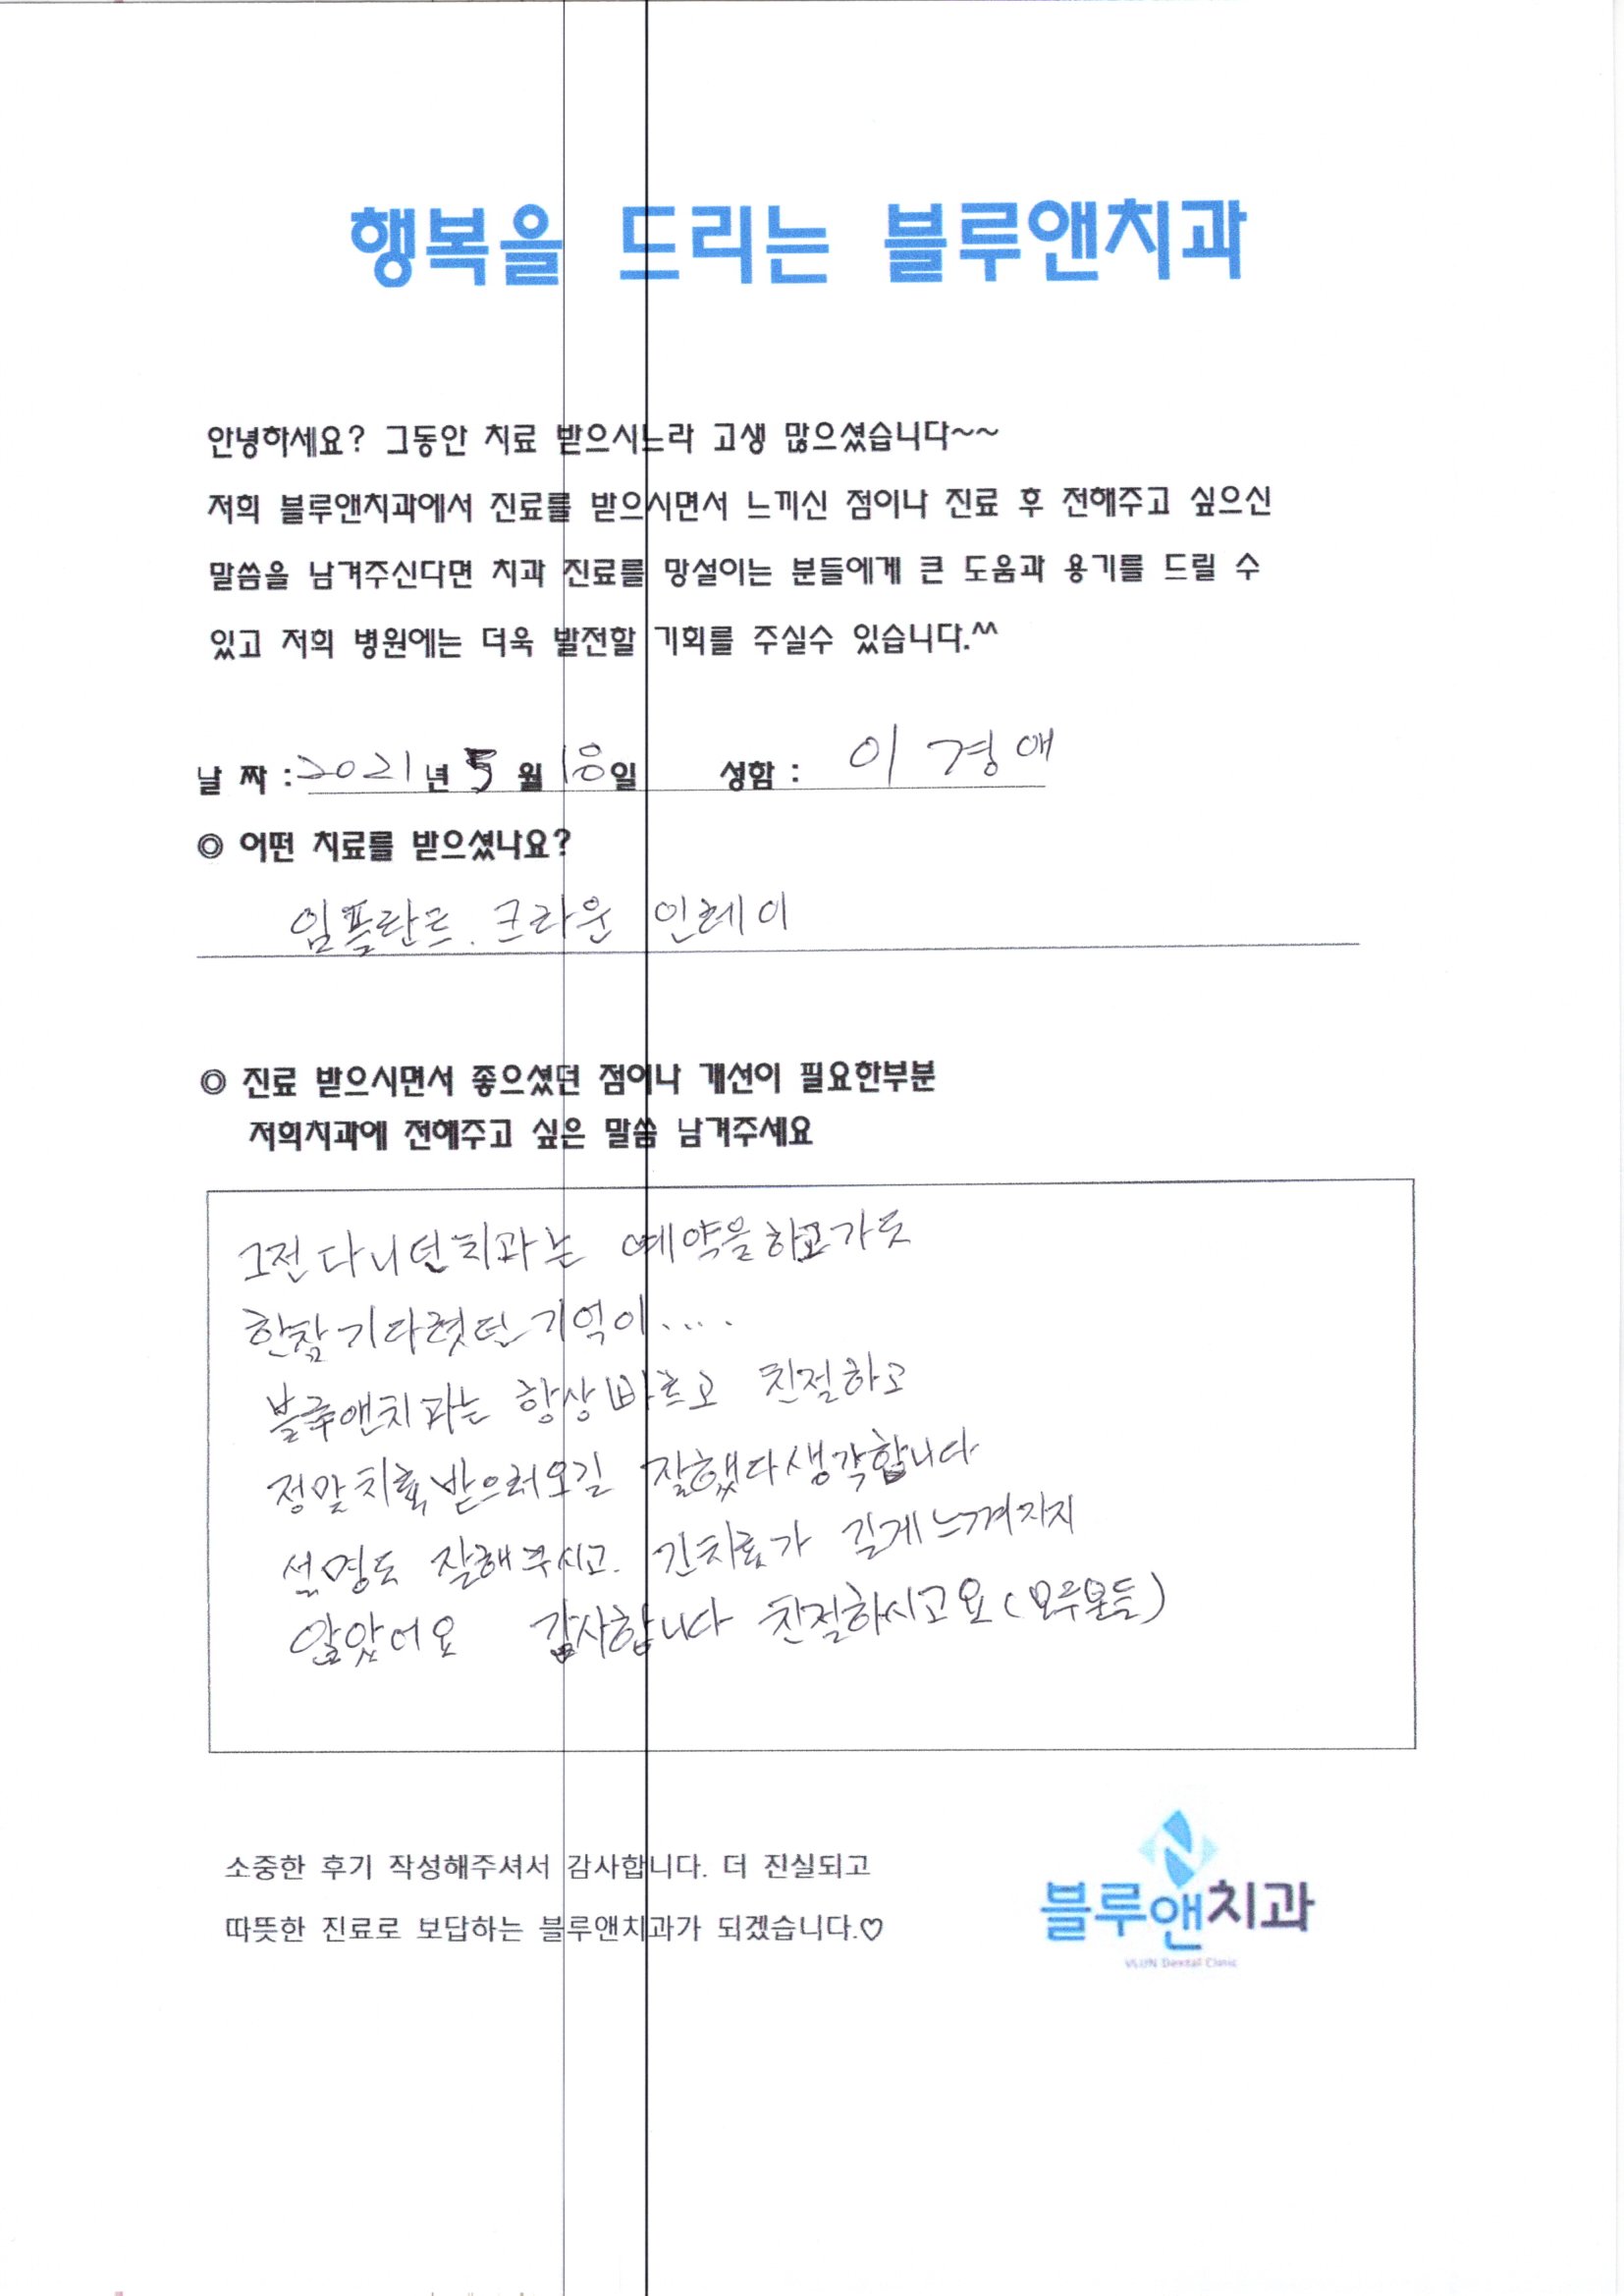 행복을 드리는 블루앤치과
안녕하세요? 그동안 치료 받으시느라 고생 많으셨습니다~~
저희 블루앤치과에서 진료를 받으시면서 느끼신 점이나 진료 후 전해주고 싶으신
말씀을 남겨주신다면 치과 진료를 망설이는 분들에게 큰 도움과 용기를 드릴 수
있고 저희 병원에는 더욱 발전할 기회를 주실수 있습니다.^^
날 짜 : 2021년 5월 18일 성함 : 이경애
◎ 어떤 치료를 받으셨나요?
임플란트. 크라운 인레이
◎ 진료 받으시면서 좋으셨던 점이나 개선이 필요한부분
저희치과에 전해주고 싶은 말씀 남겨주세요
그전 다니던 치과는 예약을하고가도
한참 기다렸던 기억이....
블루앤치과는 항상 바르고 친절하고
정말 치료 받으러오길 잘했다 생각합니다
설명도 잘해주시고. 긴치료가 길게 느껴지지
않았어요 감사합니다 친절하시고요 (모두분들)
소중한 후기 작성해주셔서 감사합니다. 더 진실되고
따뜻한 진료로 보답하는 블루앤치과가 되겠습니다.♡
블루앤치과
VLUN Dental Clinic